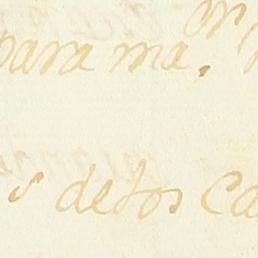 para ma.
s detos ca